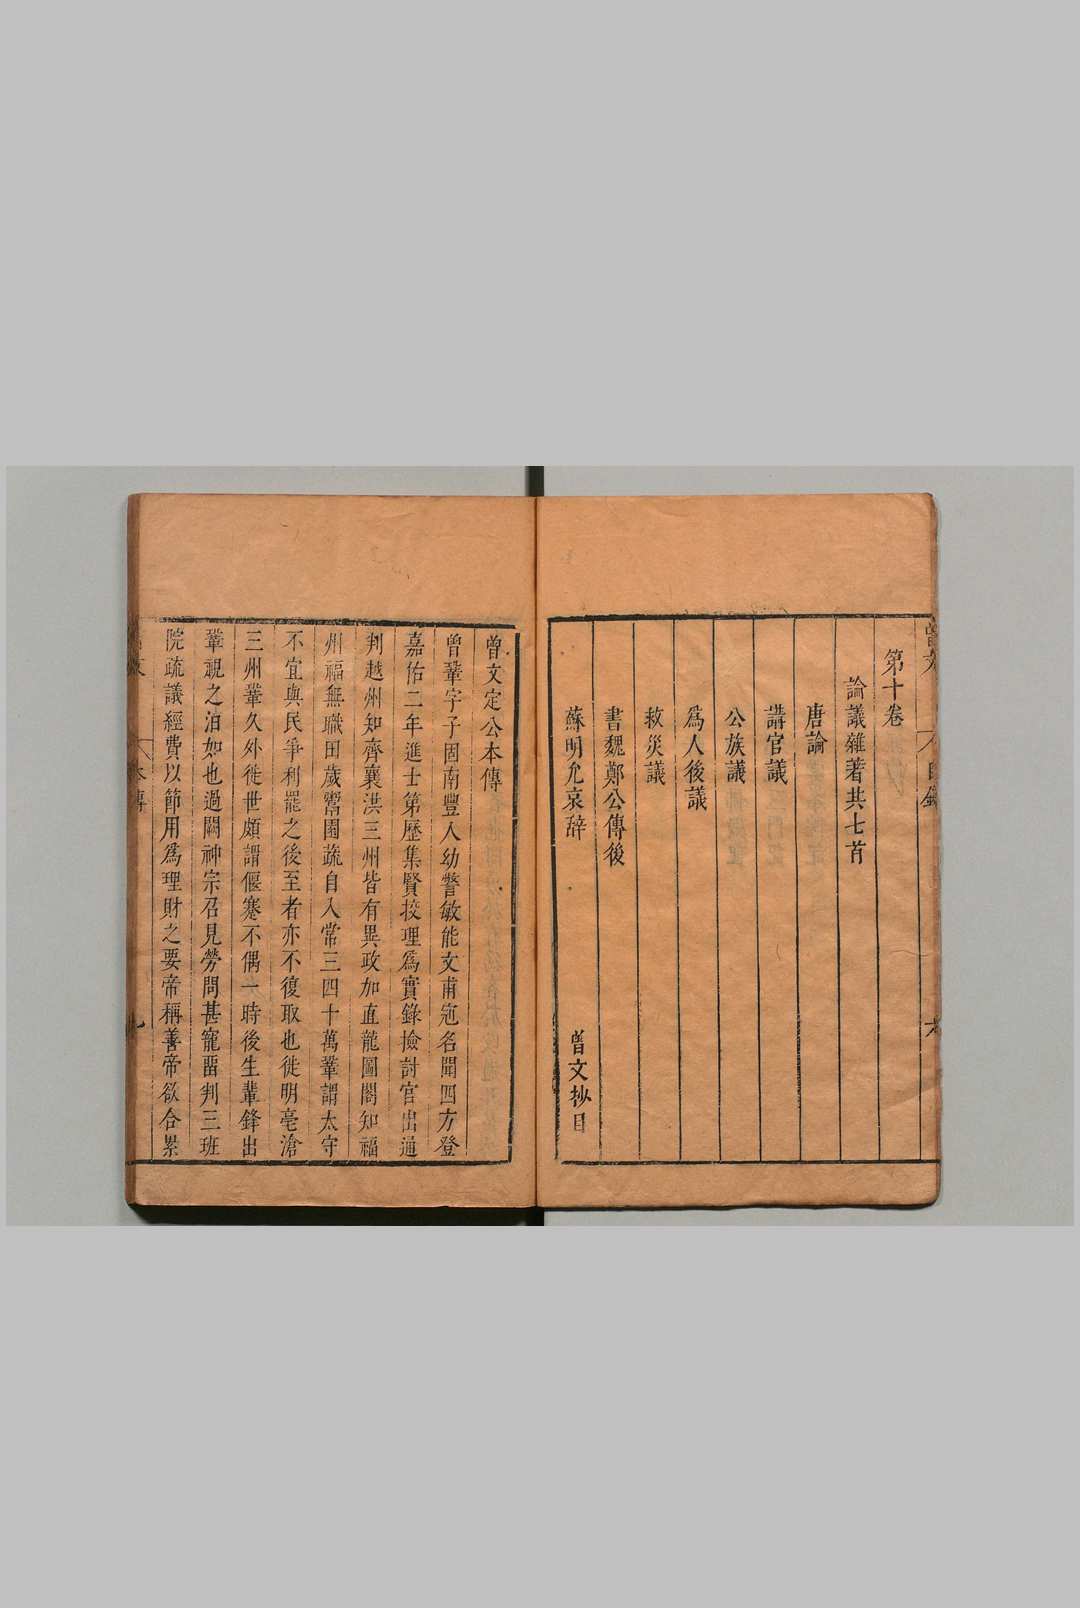 第十卷
論議雜著共七首
唐論
講官議
公族議
爲人後議
救災議
書魏鄭公傳後
蘇明允哀辭
曾文抄目
曾文定公本傳
曾鞏字子固南豐人幼警敏能文甫冠名聞四方登
嘉佑二年進士第歷集賢挍理爲實錄撿討官出通
判越州知齊襄洪三州皆有異政加直龍圖閣知福
州福無職田歲鬻園蔬自入常三四十萬鞏謂太守
不宜與民爭利罷之後至者亦不復取也徙明亳滄
三州鞏久外徙世頗謂偃蹇不偶一時後生輩鋒出
鞏視之泊如也過闕神宗召見勞問甚寵畱判三班
院疏議經費以節用爲理財之要帝稱善帝欲合累
本傳